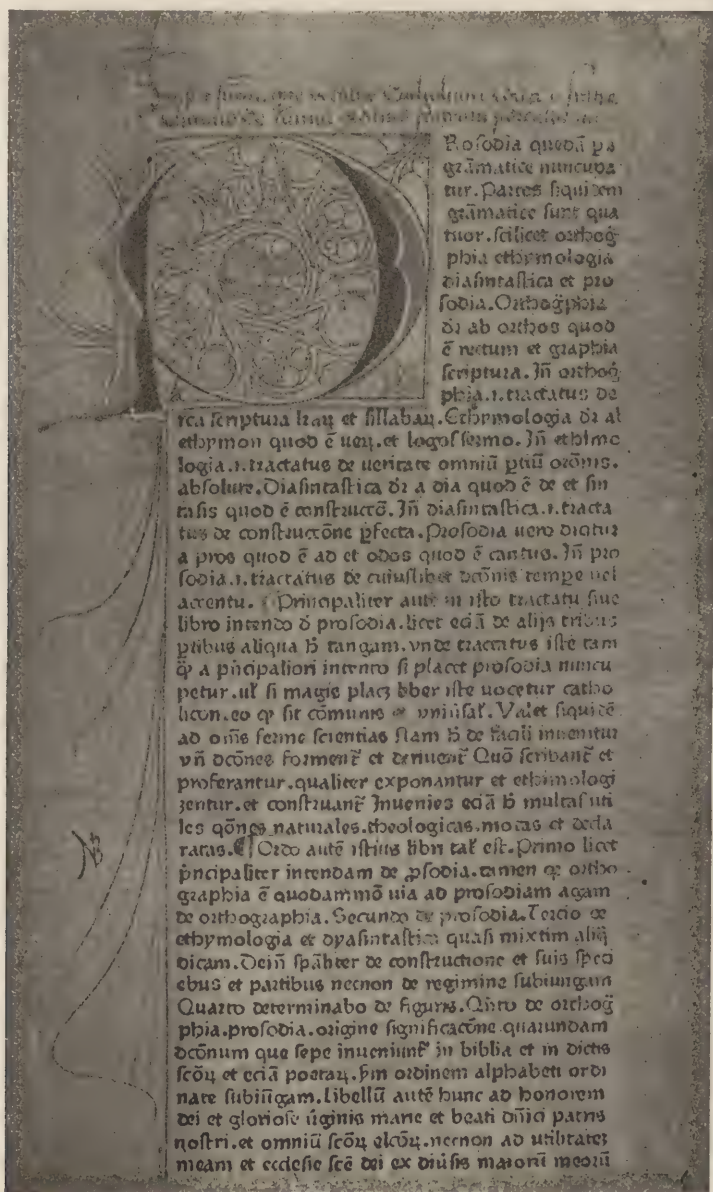 Rosodia quedā pa
grāmatice nuncupa
tur. Partes siquidem
grāmatice sunt qua
tuor. scilicet orthog̃
phia ethymologia
diasintastica et pro
sodia. Orthog̃phia
dr̄ ab orthos quod
ē rectum et graphia
scriptura. Jn̄ orthog̃
phia .ı. tractatus de
rca scriptura lr̄aꝝ et sillabaꝝ. Ethymologia dr̄ ab
ethymon quod ē ueꝝ. et logos sermo. Jn̄ ethimo
logia .ı. tractatus de ueritate omniū ꝑtiū or̄onis.
absolute. Diasintastica dr̄ a dia quod ē de et sin
tasis quod ē constructō. Jn̄ diasintastica .ı. tracta
tus de constructōne ꝑfecta. Prosodia uero dicitur
a pros quod ē ad et odos quod ē cantus. Jn̄ pro
sodia .ı. tractatus de cuiuslibet dcōnis tempe uel
accentu. Principaliter autē in isto tractatu siue
libro intendo d̄ prosodia. licet eciā de alijs tribus
ꝑtibus aliqua h̄ tangam. vnde tractatus iste tam
ꝙ a pn̄cipaliori intento si placet prosodia nuncu
petur. ul̄ si magis placꝫ liber iste uocetur catho
licon. eo ꝙ sit cōmunis et vniūsal̄. Valet siquidē
ad om̄s ferme scientias nam h̄ de facili inuenitur
vn̄ dcōnes forment᷑ et deriuent᷑ Quō scribant᷑ et
proferantur. qualiter exponantur et ethimologi
zentur. et construant᷑ Jnuenies eciā h̄ multas uti
les qōnes naturales. theologicas. motas et decla
ratas. ¶ Ordo autē istius libri tal̄ est. Primo licet
pn̄cipaliter intendam de ꝓsodia. tamen qꝛ ortho
graphia ē quodammō uia ad prosodiam agam
de orthographia. Secundo de prosodia. Tercio de
ethymologia et dyasintastica quasi mixtim aliq̄
dicam. Dein̄ sp̄aliter de constructione et suis speci
ebus et partibus necnon de regimine subiungam
Quarto determinabo de figuris. Qn̄to de orthog̃
phia. prosodia. origine significacōne quarundam
dcōnum que sepe inueniunt᷑ in biblia et in dictis
scōꝝ et eciā poetaꝝ. ẜm ordinem alphabeti ordi
nate subiūgam. Libellū autē hunc ad honorem
dei et gloriose ūginis marie et beati dn̄ici patris
nostri. et omniū scōꝝ elcōꝝ. necnon ad utilitatem
meam et ecclesie scē dei ex diūsis maiorū meorū